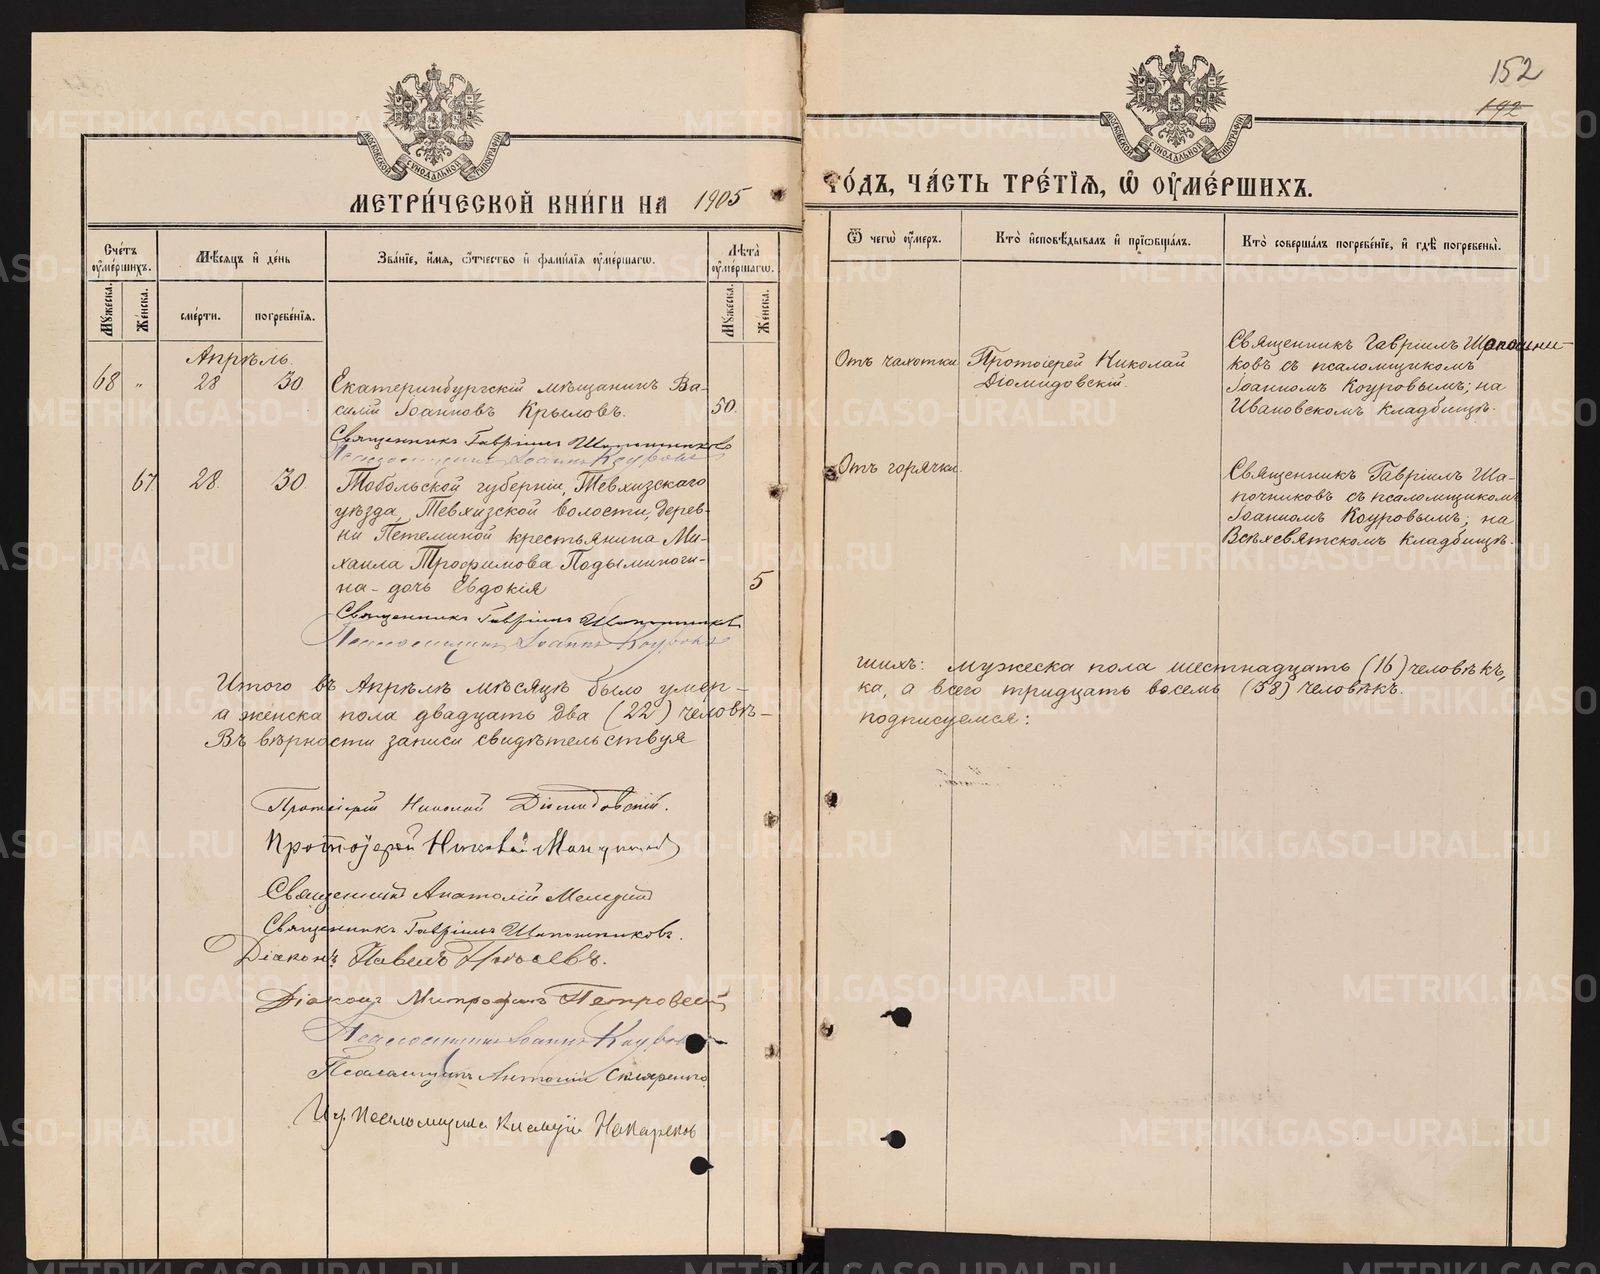 152
192
МОСКОВСКОЙ СѴНОДАЛЬНОЙ ТИПОГРАФІИ
МОСКОВСКОЙ СѴНОДАЛЬНОЙ ТИПОГРАФІИ
МЕТРИ́ЧЕСКОЙ КНИ́ГИ НА 1905
ГО́ДЪ, ЧА́СТЬ ТРЕ́ТІѦ, Ѡ҆ ОУ҆МЕ́РШИХЪ.
Сче́тъ оу҆ме́ршихъ.
Мꙋ́жеска.
Же́нска.
Мѣ́сяцъ и҆ де́нь
сме́рти.
погребе́нїѧ.
Зва́нїе, и҆́мѧ, ѻ҆́тчество и҆ фами́лїѧ оу҆ме́ршагѡ.
Лѣ́та̀ оу҆ме́ршагѡ.
Мꙋ́жеска.
Же́нска.
Ѿ чегѡ̀ оу҆́меръ.
Кто̀ и҆сповѣ́дывалъ и҆ прїѡбща́лъ.
Кто̀ соверша́лъ погребе́нїе, и҆ гдѣ̀ погребены̀.
Апрѣль
68 " 28 30 Екатеринбургскій мѣщанинъ Ва-
силій Іоанновъ Крыловъ. 50.
Священникъ Гавріилъ Шапошниковъ
Псаломщикъ Іоаннъ Коуровъ
Отъ чахотки Протоіерей Николай
Діомидовскій.
Священникъ Гавріилъ Шапошни-
ковъ съ псаломщикомъ
Іоанномъ Коуровымъ; на
Ивановскомъ кладбищѣ.
67 28 30 Тобольской губерніи, Тевхизскаго
уѣзда, Тевхизской волости, дерев-
ни Петелиной крестьянина Ми-
хаила Трофимова Подыминоги-
на - дочь Евдокія 5
Священникъ Гавріилъ Шапошниковъ
Псаломщикъ Іоаннъ Коуровъ
Отъ горячки.
Священникъ Гавріилъ Ша-
почниковъ съ псаломщикомъ
Іоанномъ Коуровымъ; на
Всѣхсвятскомъ кладбищѣ.
Итого въ Апрѣлѣ мѣсяцѣ было умер-
шихъ: мужеска пола шестнадцать (16) человѣкъ,
а женска пола двадцать два (22) человѣ-
ка, а всего тридцать восемь (38) человѣкъ.
Въ вѣрности записи свидѣтельствуя
подписуемся:
Протоіерей Николай Діомидовскій.
Протоіерей Николай
Священникъ Анатолій
Священникъ Гавріилъ Шапошниковъ.
Діаконъ Павелъ
Діаконъ Митрофанъ Петровскій
Псаломщикъ Іоаннъ Коуровъ
Псаломщикъ Антоній Скляренко
И. д. Псаломщика
METRIKI.GASO-URAL.RU